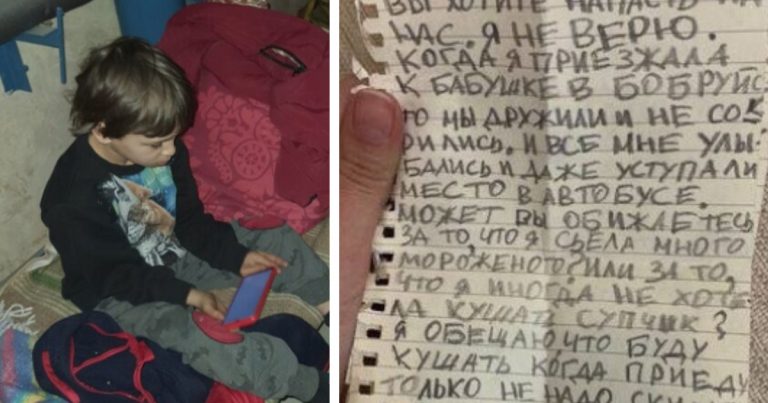 ВЫ ХОТИТЕ НАПАСТЬ НА
НАС. Я НЕ ВЕРЮ.
КОГДА Я ПРИЕЗЖАЛА
К БАБУШКЕ В БОБРУЙС
ТО МЫ ДРУЖИЛИ И НЕ СОС
РИЛИСЬ. И ВСЕ МНЕ УЛЫ-
БАЛИСЬ И ДАЖЕ УСТУПАЛИ
МЕСТО В АВТОБУСЕ.
МОЖЕТ ВЫ ОБИЖАЕТЕСЬ
ЗА ТО, ЧТО Я СЬЕЛА МНОГО
МОРОЖЕНОГО? ИЛИ ЗА ТО,
ЧТО Я ИНОГДА НЕ ХОТЕ-
ЛА КУШАТ СУПЧИК?
Я ОБЕЩАЮ ЧТО БУДУ
КУШАТЬ КОГДА ПРИЕДУ
ТОЛЬКО НЕ НАДО